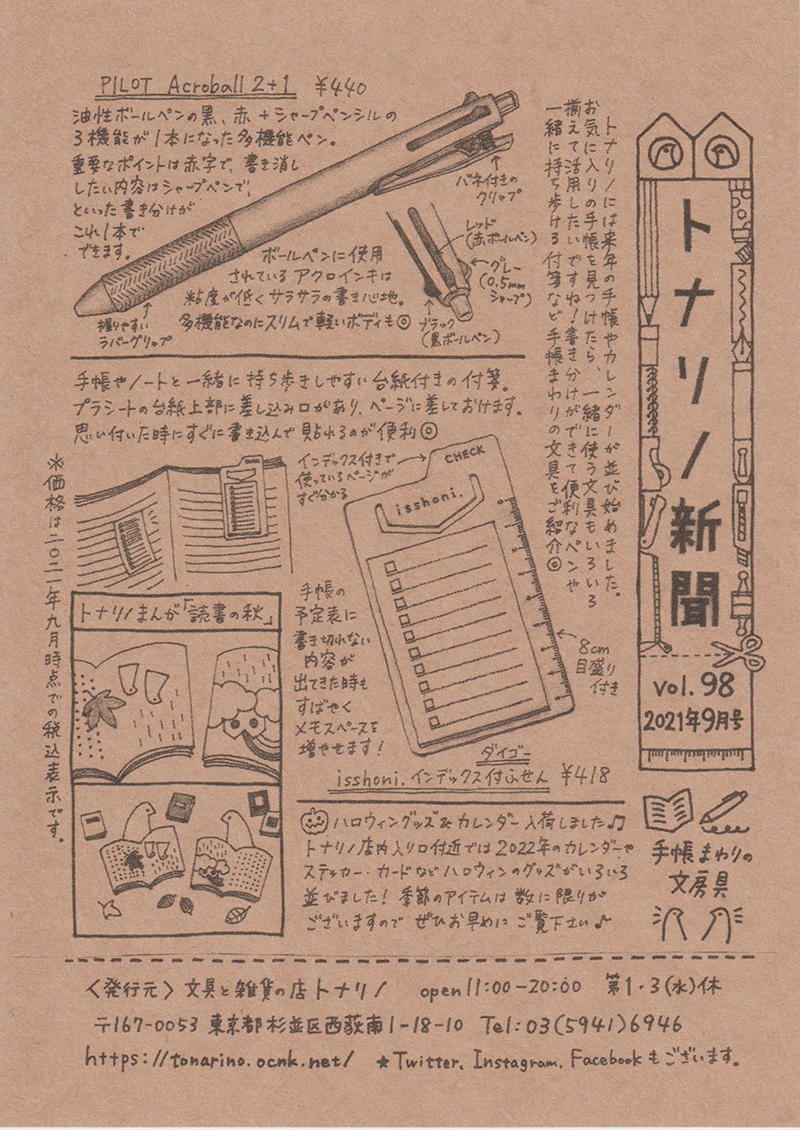 トナリノ新聞
vol.98
2021年9月号
手帳まわりの
文房具
トナリノには来年の手帳やカレンダーが並び始めました。
お気に入りの手帳を見つけたら、一緒に使う文具もいろいろ
揃えて活用したいですね！書き分けができて便利なペンや
一緒に持ち歩ける付箋など手帳まわりの文具をご紹介◎
PILOT Acroball 2+1 ¥440
油性ボールペンの黒、赤+シャープペンシルの
3機能が1本になった多機能ペン。
重要なポイントは赤字で、書き消し
したい内容はシャープペンで、
といった書き分けが
これ1本で
できます。
バネ付きの
クリップ
レッド
(赤ボールペン)
グレー
(0.5mm
シャープ)
ブラック
(黒ボールペン)
握りやすい
ラバーグリップ
ボールペンに使用
されているアクロインキは
粘度が低くサラサラの書き心地。
多機能なのにスリムで軽いボディも◎
手帳やノートと一緒に持ち歩きしやすい台紙付きの付箋。
プラシートの台紙上部に差し込み口があり、ページに差しておけます。
思い付いた時にすぐに書き込んで貼れるのが便利◎
インデックス付きで
使っているページが
すぐ分かる
CHECK
isshoni.
手帳の
予定表に
書き切れない
内容が
出てきた時も
すばやく
メモスペースを
増やせます！
8cm
目盛り
付き
ダイゴー
isshoni.インデックス付ふせん ¥418
トナリノまんが「読書の秋」
＊価格は二〇二一年九月時点での税込表示です。
ハロウィングッズ&カレンダー入荷しました♫
トナリノ店内入り口付近では2022年のカレンダーや
ステッカー・カードなどハロウィンのグッズがいろいろ
並びました！季節のアイテムは数に限りが
ございますので ぜひお早めに ご覧下さい♪
〈発行元〉文具と雑貨の店トナリノ open11:00-20:00 第1・3(水)休
〒167-0053 東京都杉並区西荻南1-18-10 Tel:03(5941)6946
https://tonarino.ocnk.net/ ★Twitter、Instagram、Facebookもございます。